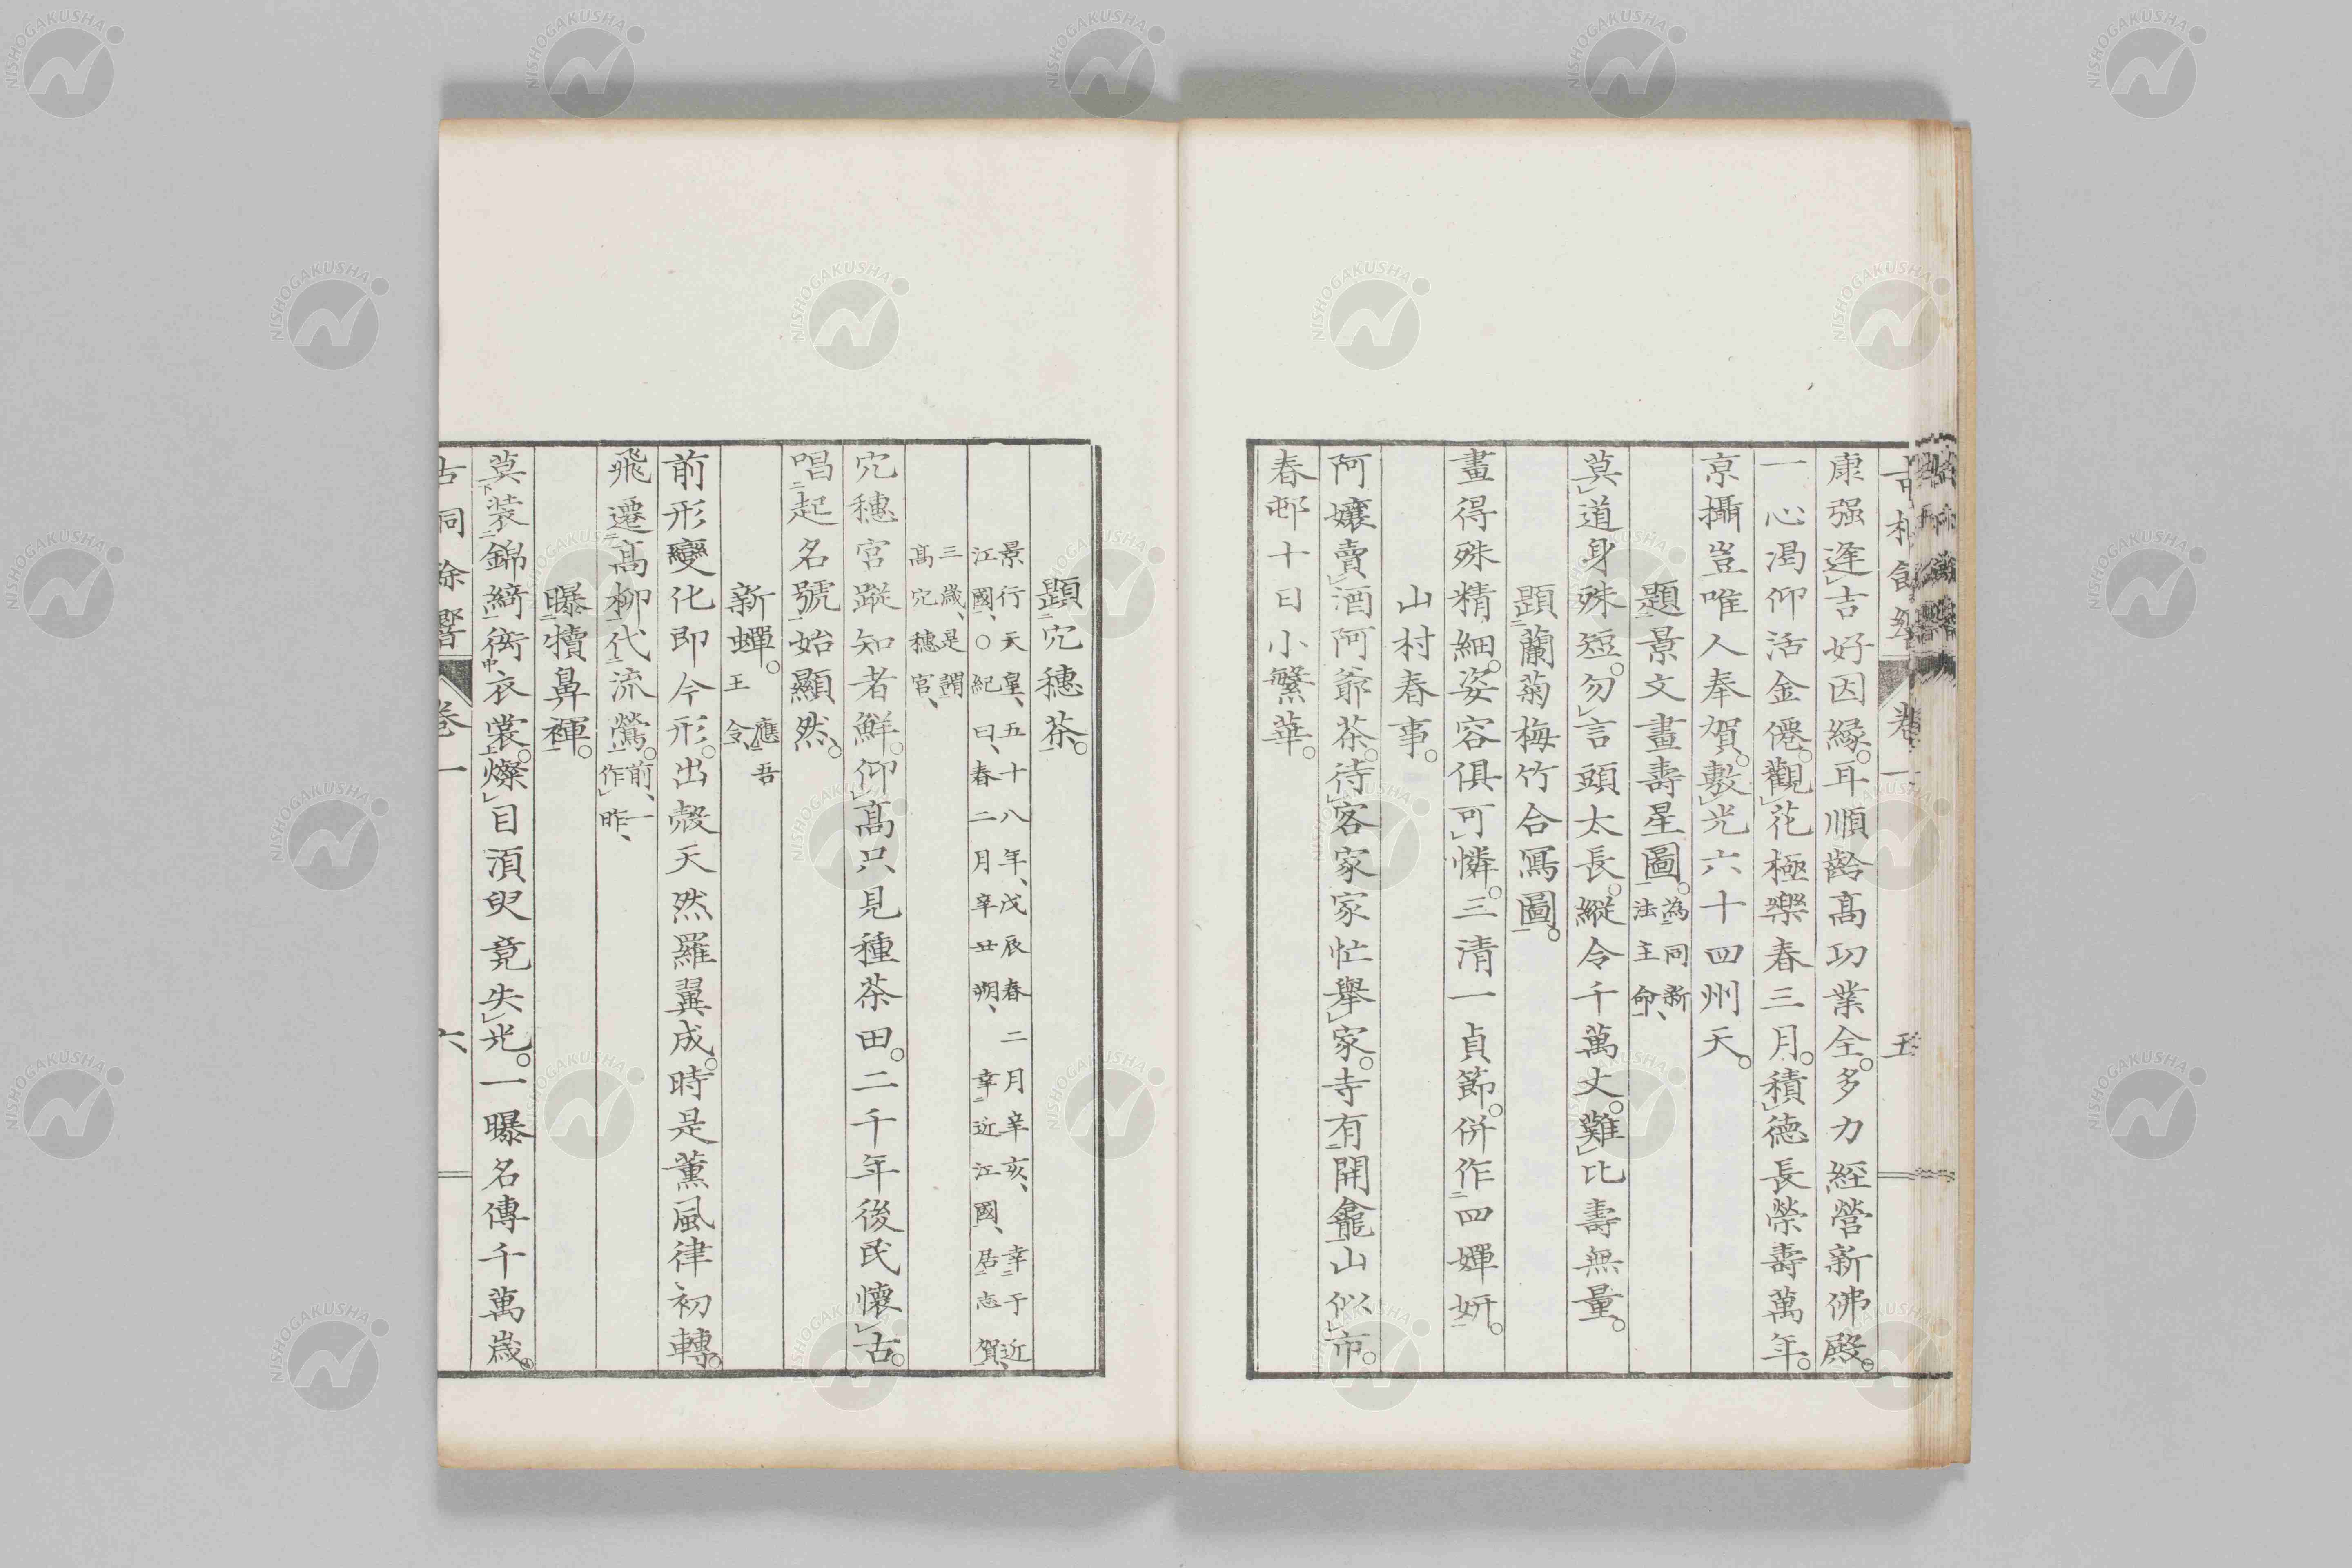 康强逢吉好因緣。耳順齡髙功業全。多力經營新佛殿。
一心渇仰活金僊。觀花極樂春三月。積徳長榮壽萬年。
京攝豈唯人奉賀。敷光六十四州天。
題景文畫壽星圖。為同新法主命、
莫道身殊短。勿言頭太長。縱令千萬丈。難比壽無量。
題蘭菊梅竹合寫圖。
畫得殊精細。姿容俱可憐。三清一貞節。併作四嬋妍。
山村春事。
阿孃賣酒阿爺茶。待客家家家忙舉家。寺有開龕山似市。
春邨十日小繁華。
卷一
五
題穴穗茶。
景行天皇、五十八年、戊辰春二月辛亥、幸于近
江國、○紀曰、春二月辛丑朔、幸近江國、居志賀、
三歲、是謂
髙穴穗宮、
穴穗宮蹤知者鮮。仰髙只見種茶田。二千年後民懷古。
唱起名號始顯然。
新蟬。應吾王令、
前形變化即今形。出殼天然羅翼成。時是薰風律初轉。
飛遷髙柳代流鶯。前、一作昨、
曝犢鼻褌。
莫装錦綺衒衣裳。燦目須臾竟失光。一曝名傳千萬歳。
卷一
六
NISHOGAKUSHA